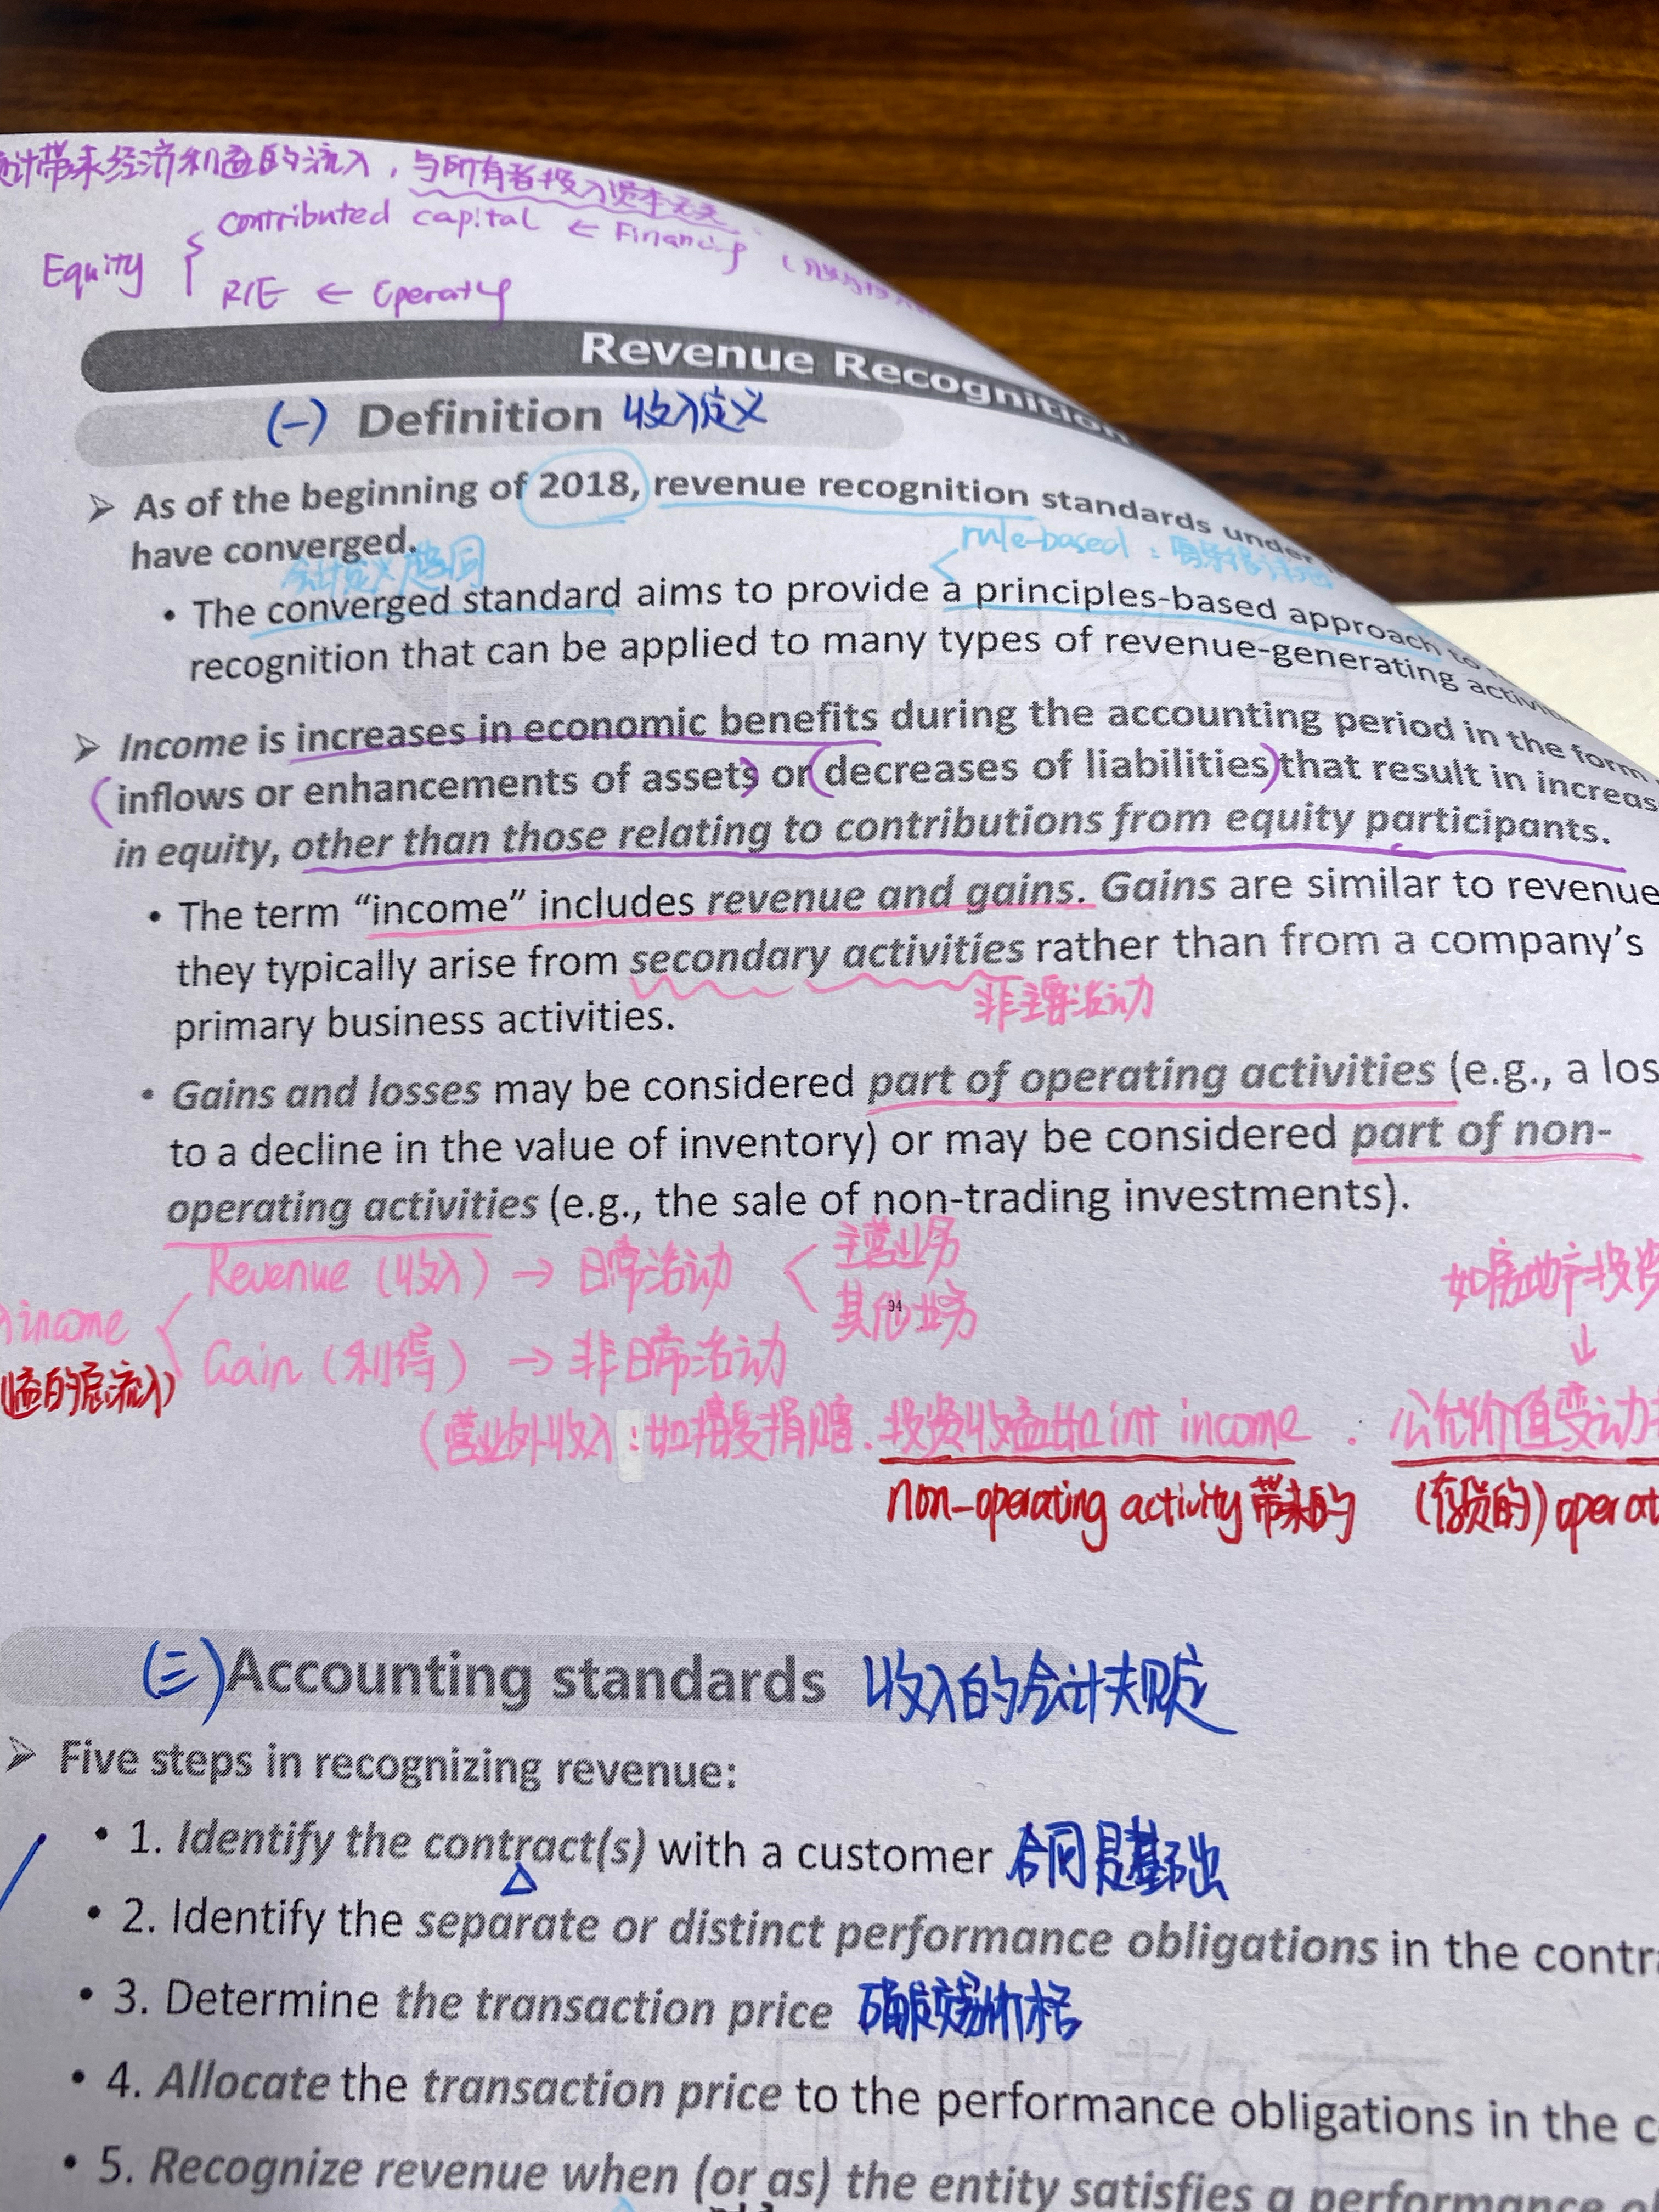 计带来经济利益的流入，与所有者投入资本无关
Equity { contributed capital ← Financing
R/E ← Operatg
Revenue Recognition
(一) Definition 收入定义
➢ As of the beginning of 2018, revenue recognition standards under
have converged.
会计定义趋同
rule-based：
• The converged standard aims to provide a principles-based approach to
recognition that can be applied to many types of revenue-generating activi
➢ Income is increases in economic benefits during the accounting period in the form
(inflows or enhancements of assets) or (decreases of liabilities) that result in increas
in equity, other than those relating to contributions from equity participants.
• The term “income” includes revenue and gains. Gains are similar to revenue
they typically arise from secondary activities rather than from a company’s
非主要活动
primary business activities.
• Gains and losses may be considered part of operating activities (e.g., a los
to a decline in the value of inventory) or may be considered part of non-
operating activities (e.g., the sale of non-trading investments).
Revenue (收入) → 日常活动 < 主营业务
其他业务
94
如房地产投资
↓
income
益的总流入)
Gain (利得) → 非日常活动
(营业外收入：如接受捐赠、投资收益如int income . 公允价值变动
non-operating activity 带来的 (存货的) operat
(三) Accounting standards 收入的会计夫则
➢ Five steps in recognizing revenue:
• 1. Identify the contract(s) with a customer 合同是基础
• 2. Identify the separate or distinct performance obligations in the contr
• 3. Determine the transaction price 确定交易价格
• 4. Allocate the transaction price to the performance obligations in the c
• 5. Recognize revenue when (or as) the entity satisfies a performance